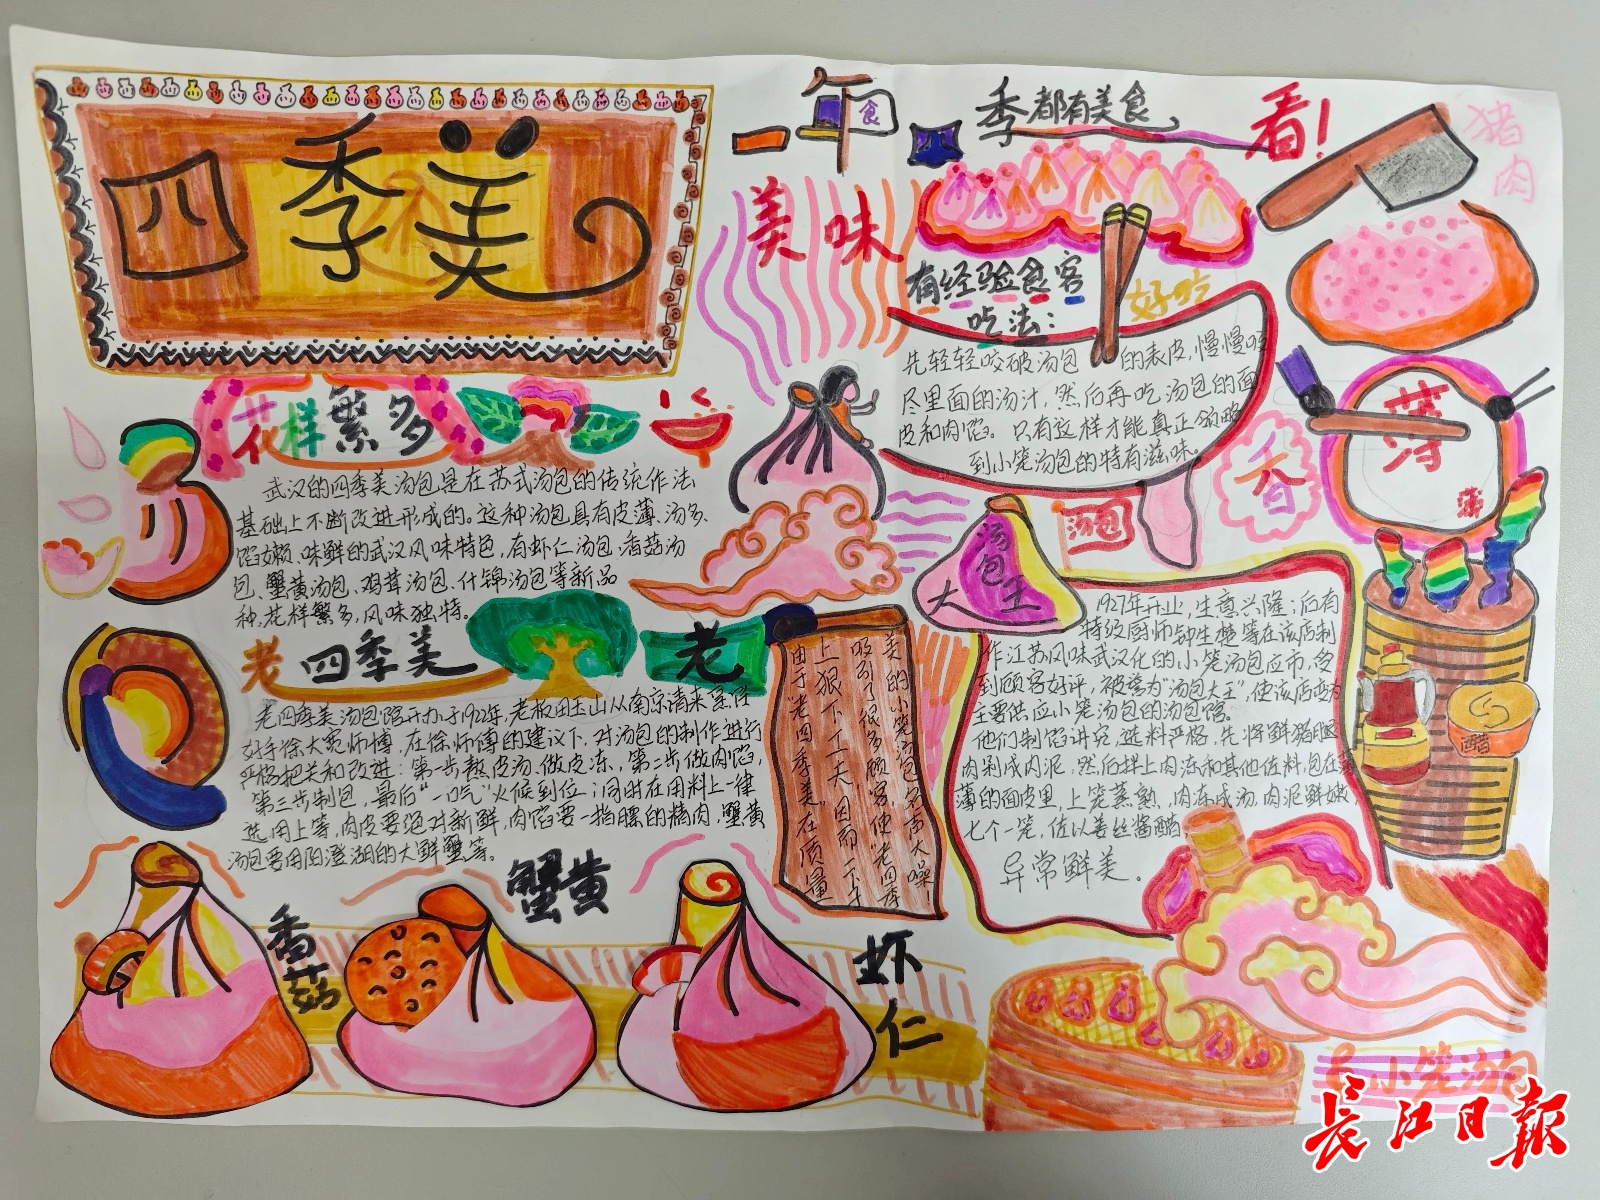 四季美
一年四季都有美食
看！
猪肉
美味
有经验食客
吃法：
好吃
先轻轻咬破汤包的表皮，慢慢吃
尽里面的汤汁，然后再吃汤包的面
皮和肉馅。只有这样才能真正领略
到小笼汤包的特有滋味。
薄
薄
香
汤包
花样繁多
武汉的四季美汤包是在苏式汤包的传统作法
基础上不断改进形成的。这种汤包具有皮薄、汤多、
馅嫩、味鲜的武汉风味特色，有虾仁汤包、香菇汤
包、蟹黄汤包、鸡茸汤包、什锦汤包等新品
种，花样繁多，风味独特。
老四季美
老
老四季美汤包馆开办于1922年，老板田玉山从南京请来烹饪
好手徐大宽师傅，在徐师傅的建议下，对汤包的制作进行
严格把关和改进：第一步熬皮汤、做皮冻，第二步做肉馅，
第三步制包，最后“一口气”火候到位；同时在用料上一律
选用上等，肉皮要绝对新鲜，肉馅要一指膘的精肉，蟹黄
汤包要用阳澄湖的大鲜蟹等。
由于“老四季美”在质量
上狠下工夫，因而一下子
吸引了很多顾客，使“老四季
美”的小笼汤包名声大噪！
汤包大王
1927年开业，生意兴隆；后有
特级厨师钟生楚等在该店制
作江苏风味武汉化的小笼汤包应市，受
到顾客好评，被誉为“汤包大王”，使该店变为
主要供应小笼汤包的汤包馆。
他们制馅讲究，选料严格，先将鲜猪腿
肉剁成肉泥，然后拌上肉冻和其他佐料，包在
薄的面皮里，上笼蒸熟，肉冻成汤，肉泥鲜嫩，
七个一笼，佐以姜丝酱醋，
异常鲜美。
醋
香菇
蟹黄
虾仁
小笼汤包
长江日报